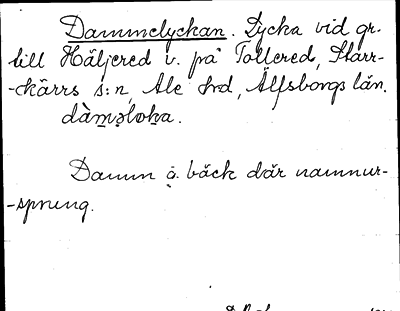 Dammelyckan. Lycka vid gr.
till Häljered v. på Tollered, Starr-
-kärrs s:n, Ale hrd, Älfsborgs län.
dàmǝloka.
Damm o. bäck där namnur-
-sprung.